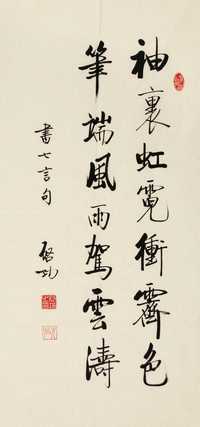 袖裏虹霓衝霽色
筆端風雨駕雲濤
書七言句
啓功